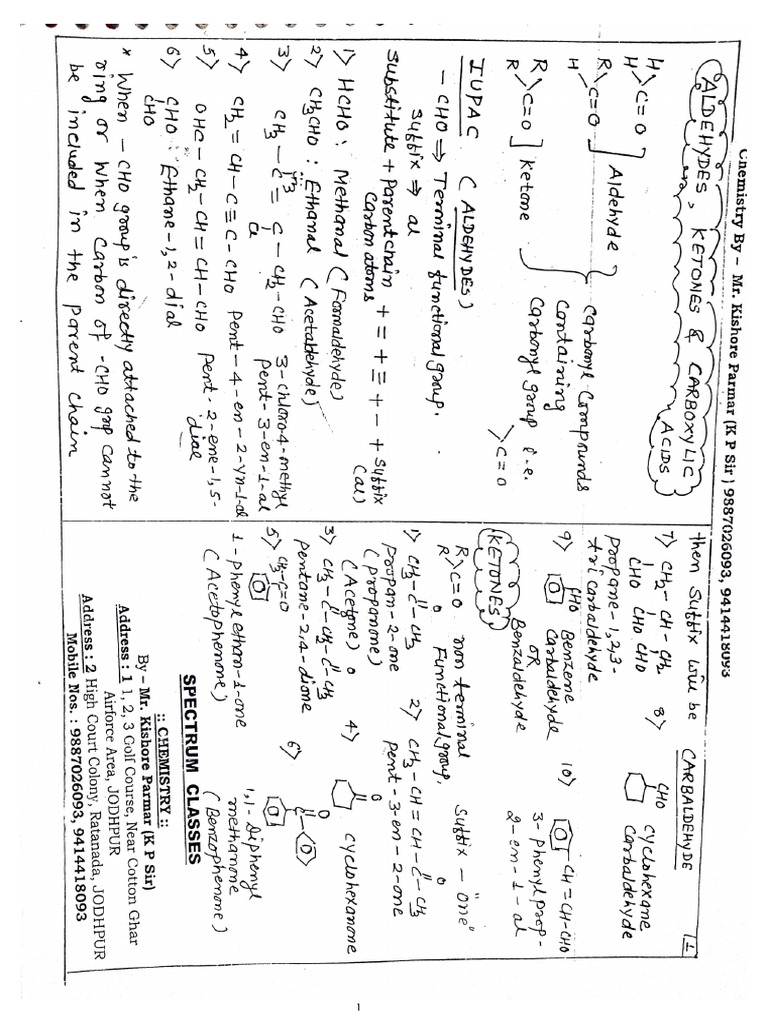 Chemistry By – Mr. Kishore Parmar (K P Sir) 9887026093, 9414418093
ALDEHYDES, KETONES & CARBOXYLIC
ACIDS
H
H >C=O
R
H >C=O ] Aldehyde
R
R >C=O ] Ketone
Carbonyl Compounds
containing
Carbonyl group i.e.
>C=O
IUPAC (ALDEHYDES)
– CHO ⇒ Terminal functional group.
Suffix ⇒ al
Substitute + Parent chain + = + ≡ + – + Suffix
Carbon atoms (al)
1> HCHO : Methanal (Formaldehyde)
2> CH3CHO : Ethanal (Acetaldehyde)
3> CH3 – C = C – CH2-CHO 3-chloro-4-methyl
CH3 Cl pent-3-en-1-al
4> CH2 = CH – C ≡ C – CHO Pent-4-en-2-yn-1-al
5> OHC – CH2 – CH = CH – CHO Pent-2-ene-1,5-
dial
6> CHO : Ethane-1,2-dial
CHO
* When – CHO group is directly attached to the
ring or when carbon of -CHO grop cannot
be included in the parent chain
then Suffix will be CARBALDEHYDE
1
7> CH2 – CH – CH2
CHO CHO CHO
propane-1,2,3-
tricarbaldehyde
8> CHO
cyclohexane
Carbaldehyde
9> CHO Benzene
Carbaldehyde
OR
Benzaldehyde
10> CH = CH-CHO
3-phenyl prop-
2-en-1-al
KETONES
R
R >C=O non terminal Suffix – "one"
Functional group.
1> CH3 – C – CH3
O
propan-2-one
(propanone)
(Acetone)
2> CH3 – CH = CH – C – CH3
O
Pent-3-en-2-one
3> CH3 – C – CH2 – C – CH3
O O
pentane-2,4-dione
4> O
cyclohexanone
5> CH3-C=O
1-phenyl ethan-1-one
(Acetophenone)
6> O
C
1,1-Diphenyl
methanone
(Benzophenone)
SPECTRUM CLASSES
:: CHEMISTRY ::
By – Mr. Kishore Parmar (K P Sir)
Address : 1 1, 2, 3 Golf Course, Near Cotton Ghar
Airforce Area, JODHPUR
Address : 2 High Court Colony, Ratanada, JODHPUR
Mobile Nos. : 9887026093, 9414418093
1